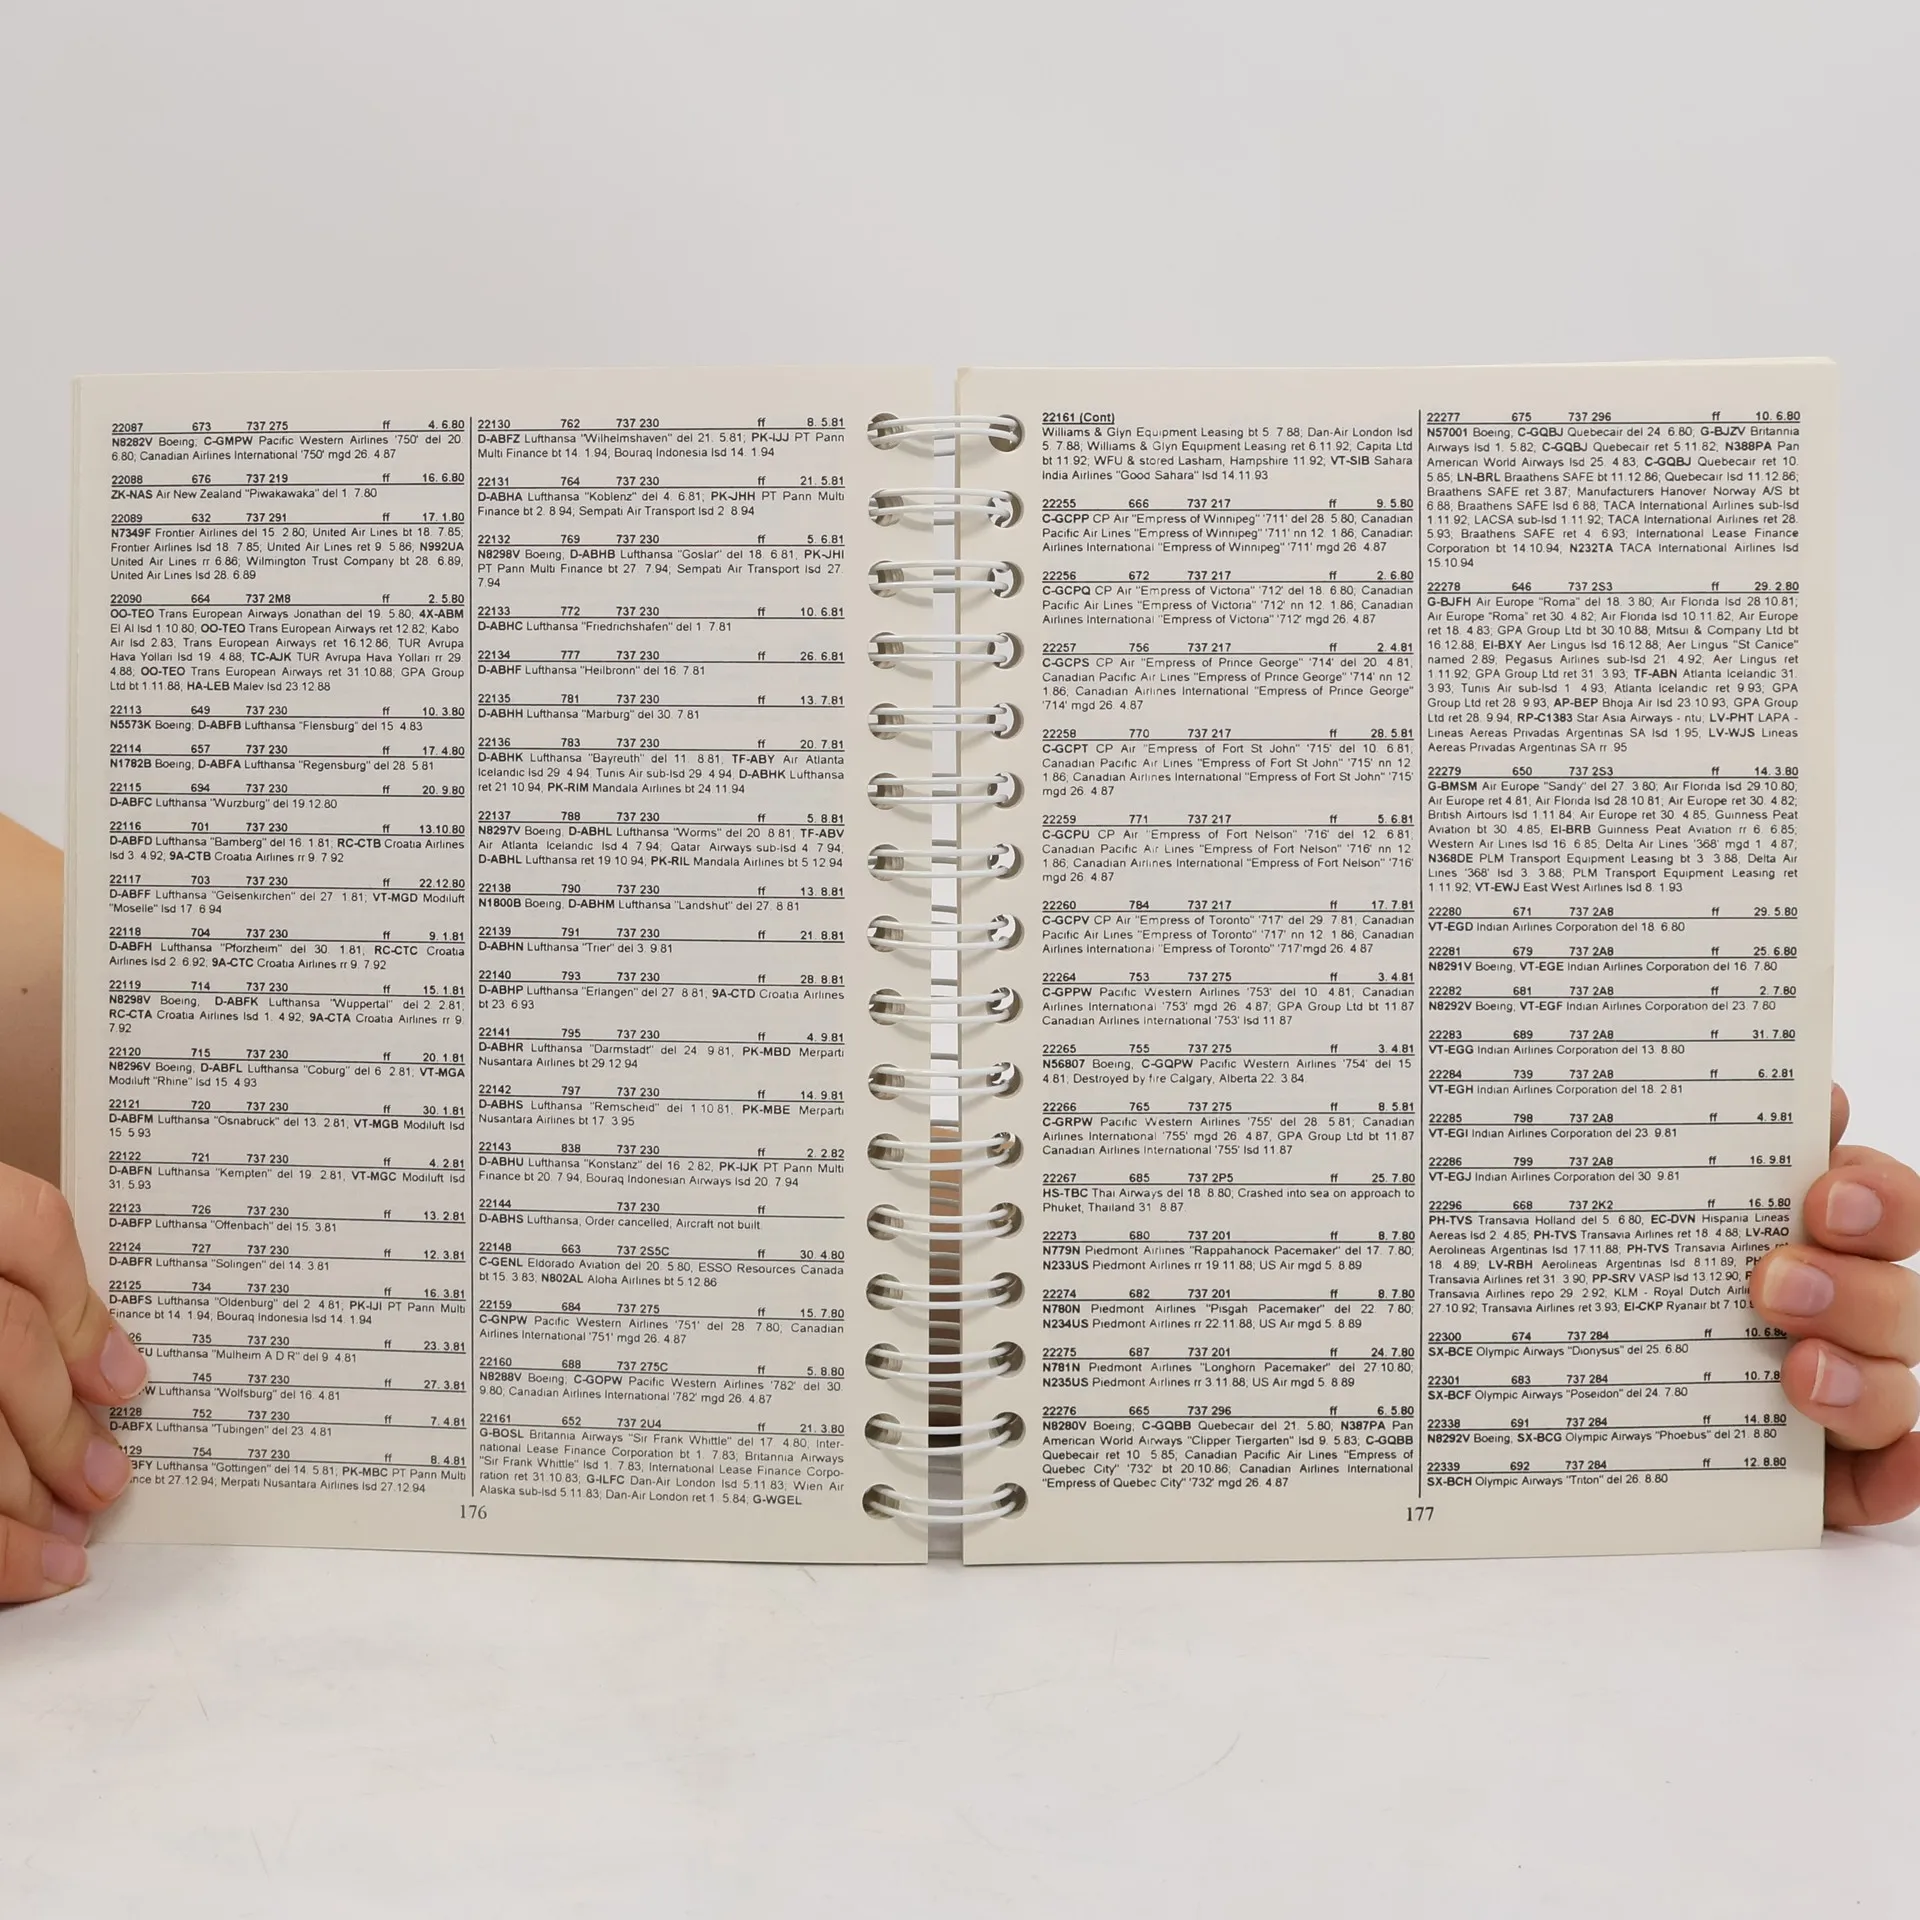 22087 673 737 275 ff 4. 6.80
N8282V Boeing; C-GMPW Pacific Western Airlines '750' del 20.
6.80; Canadian Airlines International '750' mgd 26. 4.87
22088 676 737 219 ff 16. 6.80
ZK-NAS Air New Zealand "Piwakawaka" del 1. 7.80
22089 632 737 291 ff 17. 1.80
N7349F Frontier Airlines del 15. 2.80; United Air Lines bt 18. 7.85;
Frontier Airlines lsd 18. 7.85; United Air Lines ret 9. 5.86; N992UA
United Air Lines rr 6.86; Wilmington Trust Company bt 28. 6.89,
United Air Lines lsd 28. 6.89
22090 664 737 2M8 ff 2. 5.80
OO-TEO Trans European Airways Jonathan del 19. 5.80, 4X-ABM
El Al lsd 1.10.80, OO-TEO Trans European Airways ret 12.82, Kabo
Air lsd 2.83, Trans European Airways ret 16.12.86, TUR Avrupa
Hava Yollari lsd 19. 4.88; TC-AJK TUR Avrupa Hava Yollari rr 29.
4.88, OO-TEO Trans European Airways ret 31.10.88, GPA Group
Ltd bt 1.11.88, HA-LEB Malev lsd 23.12.88
22113 649 737 230 ff 10. 3.80
N5573K Boeing; D-ABFB Lufthansa "Flensburg" del 15. 4.83
22114 657 737 230 ff 17. 4.80
N1782B Boeing, D-ABFA Lufthansa "Regensburg" del 28. 5.81
22115 694 737 230 ff 20. 9.80
D-ABFC Lufthansa "Wurzburg" del 19.12.80
22116 701 737 230 ff 13.10.80
D-ABFD Lufthansa "Bamberg" del 16. 1.81; RC-CTB Croatia Airlines
lsd 3. 4.92, 9A-CTB Croatia Airlines rr 9. 7.92
22117 703 737 230 ff 22.12.80
D-ABFF Lufthansa "Geisenkirchen" del 27. 1.81; VT-MGD Modiluft
"Moselle" lsd 17. 6.94
22118 704 737 230 ff 9. 1.81
D-ABFH Lufthansa "Pforzheim" del 30. 1.81, RC-CTC Croatia
Airlines lsd 2. 6.92; 9A-CTC Croatia Airlines rr 9. 7.92
22119 714 737 230 ff 15. 1.81
N8298V Boeing, D-ABFK Lufthansa "Wuppertal" del 2. 2.81;
RC-CTA Croatia Airlines lsd 1. 4.92; 9A-CTA Croatia Airlines rr 9.
7.92
22120 715 737 230 ff 20. 1.81
N8296V Boeing, D-ABFL Lufthansa "Coburg" del 6. 2.81; VT-MGA
Modiluft "Rhine" lsd 15. 4.93
22121 720 737 230 ff 30. 1.81
D-ABFM Lufthansa "Osnabruck" del 13. 2.81, VT-MGB Modiluft lsd
15. 5.93
22122 721 737 230 ff 4. 2.81
D-ABFN Lufthansa "Kempten" del 19. 2.81, VT-MGC Modiluft lsd
31. 5.93
22123 726 737 230 ff 13. 2.81
D-ABFP Lufthansa "Offenbach" del 15. 3.81
22124 727 737 230 ff 12. 3.81
D-ABFR Lufthansa "Solingen" del 14. 3.81
22125 734 737 230 ff 16. 3.81
D-ABFS Lufthansa "Oldenburg" del 2. 4.81; PK-IJI PT Pann Multi
Finance bt 14. 1.94, Bouraq Indonesia lsd 14. 1.94
26 735 737 230 ff 23. 3.81
FU Lufthansa "Mulheim A D R" del 9. 4.81
745 737 230 ff 27. 3.81
W Lufthansa "Wolfsburg" del 16. 4.81
22128 752 737 230 ff 7. 4.81
D-ABFX Lufthansa "Tubingen" del 23. 4.81
129 754 737 230 ff 8. 4.81
BFY Lufthansa "Gottingen" del 14. 5.81; PK-MBC PT Pann Multi
nce bt 27.12.94; Merpati Nusantara Airlines lsd 27.12.94
22130 762 737 230 ff 8. 5.81
D-ABFZ Lufthansa "Wilhelmshaven" del 21. 5.81; PK-IJJ PT Pann
Multi Finance bt 14. 1.94; Bouraq Indonesia lsd 14. 1.94
22131 764 737 230 ff 21. 5.81
D-ABHA Lufthansa "Koblenz" del 4. 6.81; PK-JHH PT Pann Multi
Finance bt 2. 8.94; Sempati Air Transport lsd 2. 8.94
22132 769 737 230 ff 5. 6.81
N8298V Boeing, D-ABHB Lufthansa "Goslar" del 18. 6.81, PK-JHI
PT Pann Multi Finance bt 27. 7.94; Sempati Air Transport lsd 27.
7.94
22133 772 737 230 ff 10. 6.81
D-ABHC Lufthansa "Friedrichshafen" del 1. 7.81
22134 777 737 230 ff 26. 6.81
D-ABHF Lufthansa "Heilbronn" del 16. 7.81
22135 781 737 230 ff 13. 7.81
D-ABHH Lufthansa "Marburg" del 30. 7.81
22136 783 737 230 ff 20. 7.81
D-ABHK Lufthansa "Bayreuth" del 11. 8.81; TF-ABY Air Atlanta
Icelandic lsd 29. 4.94; Tunis Air sub-lsd 29. 4.94; D-ABHK Lufthansa
ret 21.10.94; PK-RIM Mandala Airlines bt 24.11.94
22137 788 737 230 ff 5. 8.81
N8297V Boeing, D-ABHL Lufthansa "Worms" del 20. 8.81; TF-ABV
Air Atlanta Icelandic lsd 4. 7.94; Qatar Airways sub-lsd 4. 7.94;
D-ABHL Lufthansa ret 19.10.94; PK-RIL Mandala Airlines bt 5.12.94
22138 790 737 230 ff 13. 8.81
N1800B Boeing, D-ABHM Lufthansa "Landshut" del 27. 8.81
22139 791 737 230 ff 21. 8.81
D-ABHN Lufthansa "Trier" del 3. 9.81
22140 793 737 230 ff 28. 8.81
D-ABHP Lufthansa "Erlangen" del 27. 8.81, 9A-CTD Croatia Airlines
bt 23. 6.93
22141 795 737 230 ff 4. 9.81
D-ABHR Lufthansa "Darmstadt" del 24. 9.81, PK-MBD Merparti
Nusantara Airlines bt 29.12.94
22142 797 737 230 ff 14. 9.81
D-ABHS Lufthansa "Remscheid" del 1.10.81, PK-MBE Merparti
Nusantara Airlines bt 17. 3.95
22143 838 737 230 ff 2. 2.82
D-ABHU Lufthansa "Konstanz" del 16. 2.82, PK-IJK PT Pann Multi
Finance bt 20. 7.94, Bouraq Indonesian Airways lsd 20. 7.94
22144 737 230 ff
D-ABHS Lufthansa, Order cancelled; Aircraft not built.
22148 663 737 2S5C ff 30. 4.80
C-GENL Eldorado Aviation del 20. 5.80, ESSO Resources Canada
bt 15. 3.83, N802AL Aloha Airlines bt 5.12.86
22159 684 737 275 ff 15. 7.80
C-GNPW Pacific Western Airlines '751' del 28. 7.80; Canadian
Airlines International '751' mgd 26. 4.87
22160 688 737 275C ff 5. 8.80
N8288V Boeing; C-GOPW Pacific Western Airlines '782' del 30.
9.80; Canadian Airlines International '782' mgd 26. 4.87
22161 652 737 2U4 ff 21. 3.80
G-BOSL Britannia Airways "Sir Frank Whittle" del 17. 4.80, Inter-
national Lease Finance Corporation bt 1. 7.83; Britannia Airways
"Sir Frank Whittle" lsd 1. 7.83; International Lease Finance Corpo-
ration ret 31.10.83, G-ILFC Dan-Air London lsd 5.11.83; Wien Air
Alaska sub-lsd 5.11.83; Dan-Air London ret 1. 5.84; G-WGEL
176
22161 (Cont)
Williams & Glyn Equipment Leasing bt 5. 7.88; Dan-Air London lsd
5. 7.88; Williams & Glyn Equipment Leasing ret 6.11.92, Capita Ltd
bt 11.92; WFU & stored Lasham, Hampshire 11.92; VT-SIB Sahara
India Airlines "Good Sahara" lsd 14.11.93
22255 666 737 217 ff 9. 5.80
C-GCPP CP Air "Empress of Winnipeg" '711' del 28. 5.80, Canadian
Pacific Air Lines "Empress of Winnipeg" '711' nn 12. 1.86; Canadian
Airlines International "Empress of Winnipeg" '711' mgd 26. 4.87
22256 672 737 217 ff 2. 6.80
C-GCPQ CP Air "Empress of Victoria" '712' del 18. 6.80; Canadian
Pacific Air Lines "Empress of Victoria" '712' nn 12. 1.86; Canadian
Airlines International "Empress of Victoria" '712' mgd 26. 4.87
22257 756 737 217 ff 2. 4.81
C-GCPS CP Air "Empress of Prince George" '714' del 20. 4.81,
Canadian Pacific Air Lines "Empress of Prince George" '714' nn 12.
1.86, Canadian Airlines International "Empress of Prince George"
'714' mgd 26. 4.87
22258 770 737 217 ff 28. 5.81
C-GCPT CP Air "Empress of Fort St John" '715' del 10. 6.81,
Canadian Pacific Air Lines "Empress of Fort St John" '715' nn 12.
1.86, Canadian Airlines International "Empress of Fort St John" '715'
mgd 26. 4.87
22259 771 737 217 ff 5. 6.81
C-GCPU CP Air "Empress of Fort Nelson" '716' del 12. 6.81;
Canadian Pacific Air Lines "Empress of Fort Nelson" '716' nn 12.
1.86, Canadian Airlines International "Empress of Fort Nelson" '716'
mgd 26. 4.87
22260 784 737 217 ff 17. 7.81
C-GCPV CP Air "Empress of Toronto" '717' del 29. 7.81, Canadian
Pacific Air Lines "Empress of Toronto" '717' nn 12. 1.86; Canadian
Airlines International "Empress of Toronto" '717'mgd 26. 4.87
22264 753 737 275 ff 3. 4.81
C-GPPW Pacific Western Airlines '753' del 10. 4.81; Canadian
Airlines International '753' mgd 26. 4.87; GPA Group Ltd bt 11.87
Canadian Airlines International '753' lsd 11.87
22265 755 737 275 ff 3. 4.81
N56807 Boeing, C-GQPW Pacific Western Airlines '754' del 15.
4.81; Destroyed by fire Calgary, Alberta 22. 3.84
22266 765 737 275 ff 8. 5.81
C-GRPW Pacific Western Airlines '755' del 28. 5.81; Canadian
Airlines International '755' mgd 26. 4.87, GPA Group Ltd bt 11.87
Canadian Airlines International '755' lsd 11.87
22267 685 737 2P5 ff 25. 7.80
HS-TBC Thai Airways del 18. 8.80; Crashed into sea on approach to
Phuket, Thailand 31. 8.87.
22273 680 737 201 ff 8. 7.80
N779N Piedmont Airlines "Rappahanock Pacemaker" del 17. 7.80;
N233US Piedmont Airlines rr 19.11.88; US Air mgd 5. 8.89
22274 682 737 201 ff 8. 7.80
N780N Piedmont Airlines "Pisgah Pacemaker" del 22. 7.80;
N234US Piedmont Airlines rr 22.11.88; US Air mgd 5. 8.89
22275 687 737 201 ff 24. 7.80
N781N Piedmont Airlines "Longhorn Pacemaker" del 27.10.80;
N235US Piedmont Airlines rr 3.11.88; US Air mgd 5. 8.89
22276 665 737 296 ff 6. 5.80
N8280V Boeing, C-GQBB Quebecair del 21. 5.80, N387PA Pan
American World Airways "Clipper Tiergarten" lsd 9. 5.83; C-GQBB
Quebecair ret 10. 5.85; Canadian Pacific Air Lines "Empress of
Quebec City" '732' bt 20.10.86; Canadian Airlines International
"Empress of Quebec City" '732' mgd 26. 4.87
22277 675 737 296 ff 10. 6.80
N57001 Boeing, C-GQBJ Quebecair del 24. 6.80; G-BJZV Britannia
Airways lsd 1. 5.82, C-GQBJ Quebecair ret 5.11.82, N388PA Pan
American World Airways lsd 25. 4.83, C-GQBJ Quebecair ret 10.
5.85; LN-BRL Braathens SAFE bt 11.12.86; Quebecair lsd 11.12.86;
Braathens SAFE ret 3.87; Manufacturers Hanover Norway A/S bt
6.88; Braathens SAFE lsd 6.88, TACA International Airlines sub-lsd
1.11.92, LACSA sub-lsd 1.11.92; TACA International Airlines ret 28.
5.93; Braathens SAFE ret 4. 6.93; International Lease Finance
Corporation bt 14.10.94, N232TA TACA International Airlines lsd
15.10.94
22278 646 737 2S3 ff 29. 2.80
G-BJFH Air Europe "Roma" del 18. 3.80; Air Florida lsd 28.10.81;
Air Europe "Roma" ret 30. 4.82; Air Florida lsd 10.11.82, Air Europe
ret 18. 4.83; GPA Group Ltd bt 30.10.88; Mitsui & Company Ltd bt
16.12.88; EI-BXY Aer Lingus lsd 16.12.88; Aer Lingus "St Canice"
named 2.89, Pegasus Airlines sub-lsd 21. 4.92, Aer Lingus ret
1.11.92, GPA Group Ltd ret 31. 3.93; TF-ABN Atlanta Icelandic 31.
3.93, Tunis Air sub-lsd 1. 4.93, Atlanta Icelandic ret 9.93, GPA
Group Ltd ret 28. 9.93, AP-BEP Bhoja Air lsd 23.10.93, GPA Group
Ltd ret 28. 9.94, RP-C1383 Star Asia Airways - ntu; LV-PHT LAPA -
Lineas Aereas Privadas Argentinas SA lsd 1.95, LV-WJS Lineas
Aereas Privadas Argentinas SA rr .95
22279 650 737 2S3 ff 14. 3.80
G-BMSM Air Europe "Sandy" del 27. 3.80; Air Florida lsd 29.10.80;
Air Europe ret 4.81; Air Florida lsd 28.10.81; Air Europe ret 30. 4.82;
British Airtours lsd 1.11.84; Air Europe ret 30. 4.85, Guinness Peat
Aviation bt 30. 4.85, EI-BRB Guinness Peat Aviation rr 6. 6.85;
Western Air Lines lsd 16. 6.85; Delta Air Lines '368' mgd 1. 4.87,
N368DE PLM Transport Equipment Leasing bt 3. 3.88, Delta Air
Lines '368' lsd 3. 3.88; PLM Transport Equipment Leasing ret
1.11.92; VT-EWJ East West Airlines lsd 8. 1.93
22280 671 737 2A8 ff 29. 5.80
VT-EGD Indian Airlines Corporation del 18. 6.80
22281 679 737 2A8 ff 25. 6.80
N8291V Boeing, VT-EGE Indian Airlines Corporation del 16. 7.80
22282 681 737 2A8 ff 2. 7.80
N8292V Boeing, VT-EGF Indian Airlines Corporation del 23. 7.80
22283 689 737 2A8 ff 31. 7.80
VT-EGG Indian Airlines Corporation del 13. 8.80
22284 739 737 2A8 ff 6. 2.81
VT-EGH Indian Airlines Corporation del 18. 2.81
22285 798 737 2A8 ff 4. 9.81
VT-EGI Indian Airlines Corporation del 23. 9.81
22286 799 737 2A8 ff 16. 9.81
VT-EGJ Indian Airlines Corporation del 30. 9.81
22296 668 737 2K2 ff 16. 5.80
PH-TVS Transavia Holland del 5. 6.80, EC-DVN Hispania Lineas
Aereas lsd 2. 4.85; PH-TVS Transavia Airlines ret 18. 4.88, LV-RAO
Aerolineas Argentinas lsd 17.11.88; PH-TVS Transavia Airlines
18. 4.89; LV-RBH Aerolineas Argentinas lsd 8.11.89,
Transavia Airlines ret 31. 3.90, PP-SRV VASP lsd 13.12.90,
Transavia Airlines repo 29. 2.92; KLM - Royal Dutch
27.10.92; Transavia Airlines ret 3.93; EI-CKP Ryanair bt
22300 674 737 284 ff 10. 6.80
SX-BCE Olympic Airways "Dionysus" del 25. 6.80
22301 683 737 284 ff 10. 7.8
SX-BCF Olympic Airways "Poseidon" del 24. 7.80
22338 691 737 284 ff 14. 8.80
N8292V Boeing, SX-BCG Olympic Airways "Phoebus" del 21. 8.80
22339 692 737 284 ff 12. 8.80
SX-BCH Olympic Airways "Triton" del 26. 8.80
177